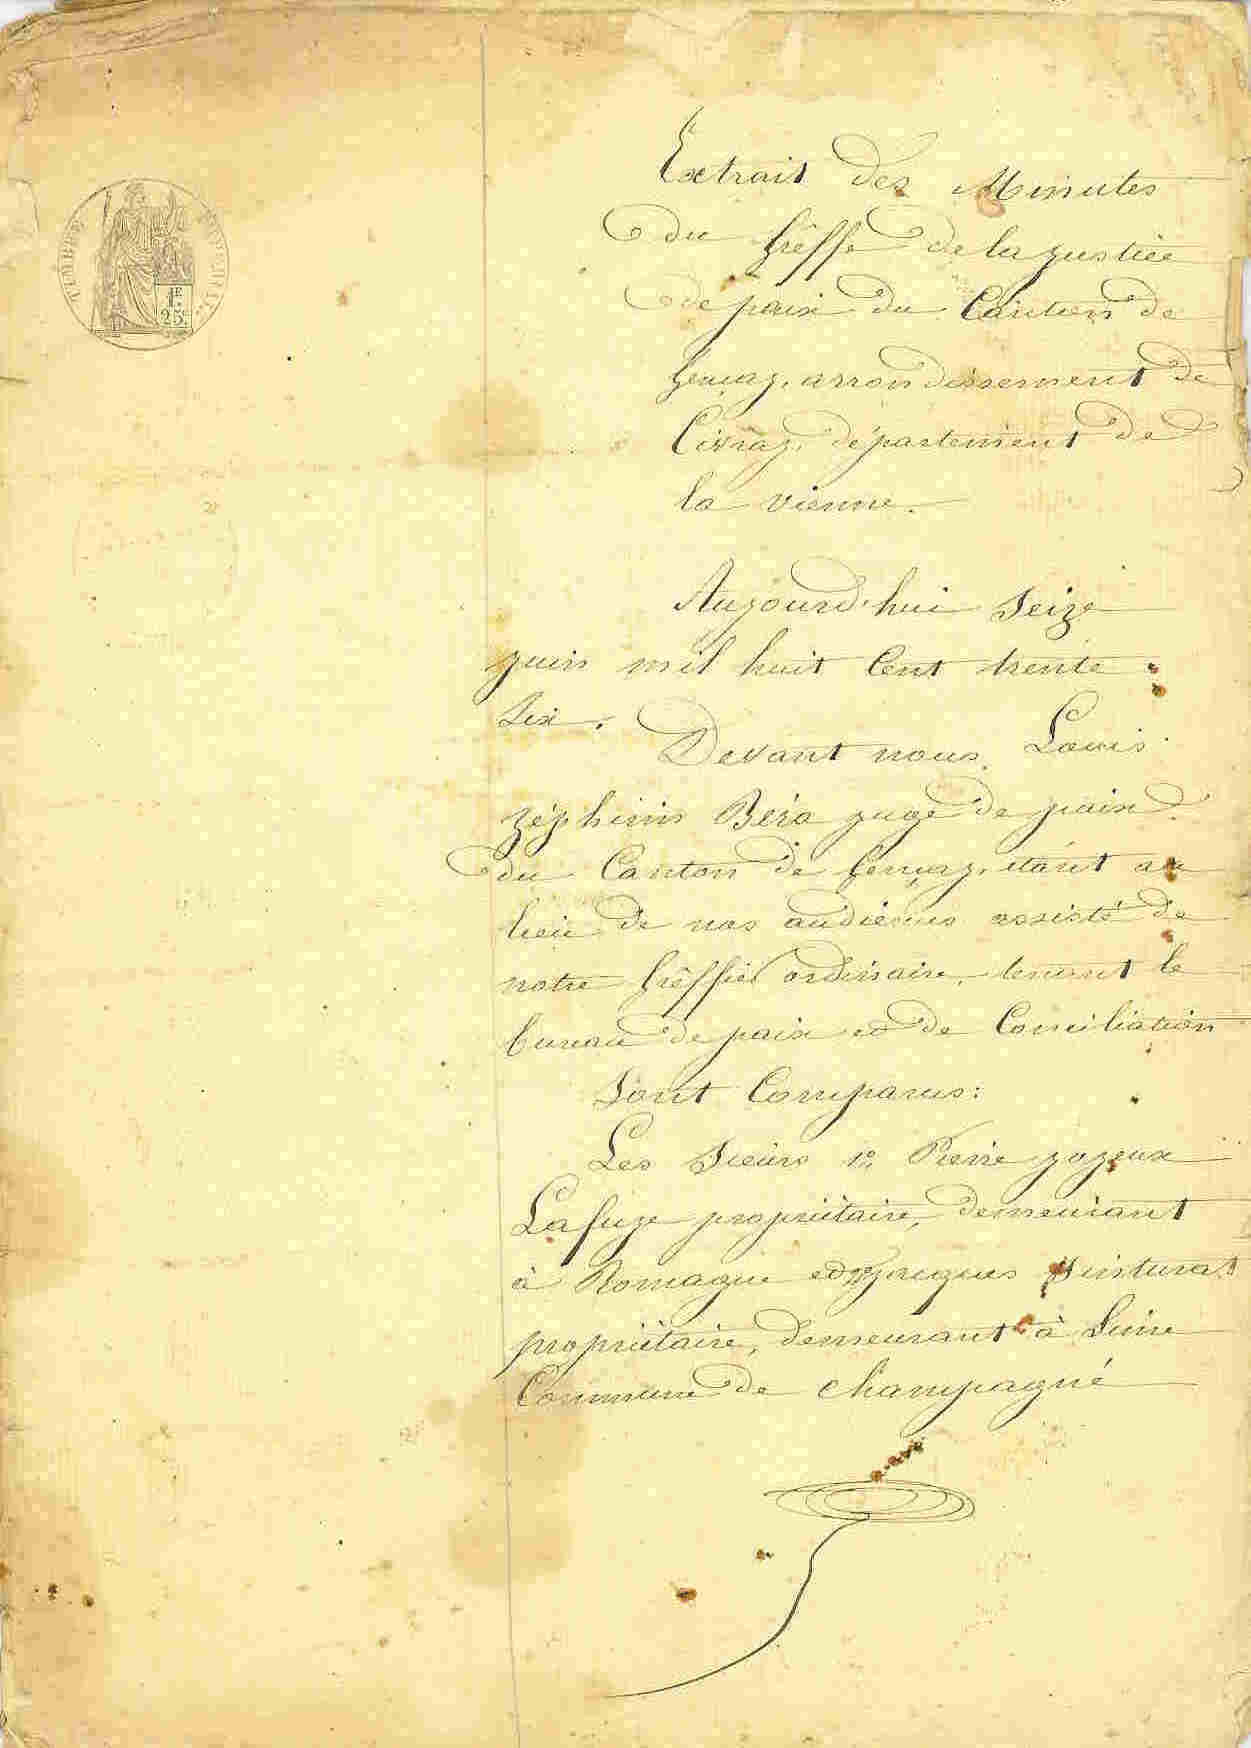 TIMBRE IMPERIAL
1F.
25c.
Extrait des Minutes
du Grêffe de la justice
de paix du Canton de
Gençay, arrondissement de
Civray, département de
la vienne.
Aujourd'hui Seize
juin mil huit Cent trente
Six. Devant nous, Louis
zéphirin Béra juge de paix
du Canton de Gençay, étant au
lieu de nos audiences assisté de
notre Grêffier ordinaire, tenant le
bureau de paix et de Conciliation
Sont Comparus:
Les Sieurs 1o. Pierre joyeux
Lafuye propriétaire, demeurant
à Romagne et 2o jacques
propriétaire, demeurant à
Commune de Champagné